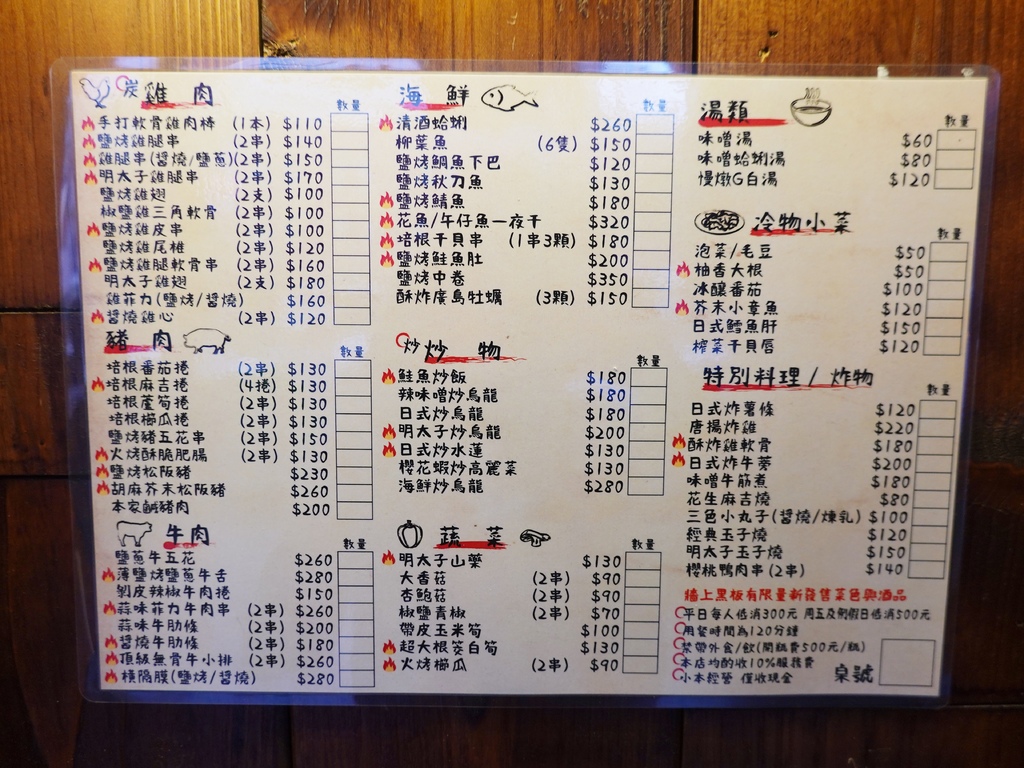 炭 雞肉
數量
手打軟骨雞肉棒 (1本) $110
鹽烤雞腿串 (2串) $140
雞腿串(醬燒/鹽蔥)(2串) $150
明太子雞腿串 (2串) $170
鹽烤雞翅 (2支) $100
椒鹽雞三角軟骨 (2串) $100
鹽烤雞皮串 (2串) $100
鹽烤雞尾椎 (2串) $120
鹽烤雞腿軟骨串 (2串) $160
明太子雞翅 (2支) $180
雞菲力(鹽烤/醬燒) $160
醬燒雞心 (2串) $120
豬肉
數量
培根番茄捲 (2串) $130
培根麻吉捲 (4捲) $130
培根蘆筍捲 (2串) $130
培根櫛瓜捲 (2串) $130
鹽烤豬五花串 (2串) $150
火烤酥脆肥腸 (2串) $130
鹽烤松阪豬 $230
胡麻芥末松阪豬 $260
本家鹹豬肉 $200
牛肉
數量
鹽蔥牛五花 $260
薄鹽烤鹽蔥牛舌 $280
剝皮辣椒牛肉捲 $150
蒜味菲力牛肉串 (2串) $260
蒜味牛肋條 (2串) $200
醬燒牛肋條 (2串) $180
頂級無骨牛小排 (2串) $260
橫隔膜(鹽烤/醬燒) $280
海鮮
數量
清酒蛤蜊 $260
柳葉魚 (6隻) $150
鹽烤鯛魚下巴 $120
鹽烤秋刀魚 $130
鹽烤鯖魚 $180
花魚/午仔魚一夜干 $320
培根干貝串 (1串3顆) $180
鹽烤鮭魚肚 $200
鹽烤中卷 $350
酥炸廣島牡蠣 (3顆) $150
炒 炒物
數量
鮭魚炒飯 $180
辣味噌炒烏龍 $180
日式炒烏龍 $180
明太子炒烏龍 $200
日式炒水蓮 $130
櫻花蝦炒高麗菜 $130
海鮮炒烏龍 $280
蔬菜
數量
明太子山藥 $130
大香菇 (2串) $90
杏鮑菇 (2串) $90
椒鹽青椒 (2串) $70
帶皮玉米筍 $100
超大根茭白筍 $130
火烤櫛瓜 (2串) $90
湯類
數量
味噌湯 $60
味噌蛤蜊湯 $80
慢燉G白湯 $120
冷物小菜
數量
泡菜/毛豆 $50
柚香大根 $50
冰釀番茄 $100
芥末小章魚 $120
日式鱈魚肝 $150
榨菜干貝唇 $120
特別料理/炸物
數量
日式炸薯條 $120
唐揚炸雞 $220
酥炸雞軟骨 $180
日式炸牛蒡 $200
味噌牛筋煮 $180
花生麻吉燒 $80
三色小丸子(醬燒/煉乳) $100
經典玉子燒 $120
明太子玉子燒 $150
櫻桃鴨肉串(2串) $140
牆上黑板有限量新發售菜色與酒品
平日每人低消300元 周五及例假日低消500元
用餐時間為120分鐘
禁帶外食/飲(開瓶費500元/瓶)
本店均酌收10%服務費
小本經營 僅收現金
桌號